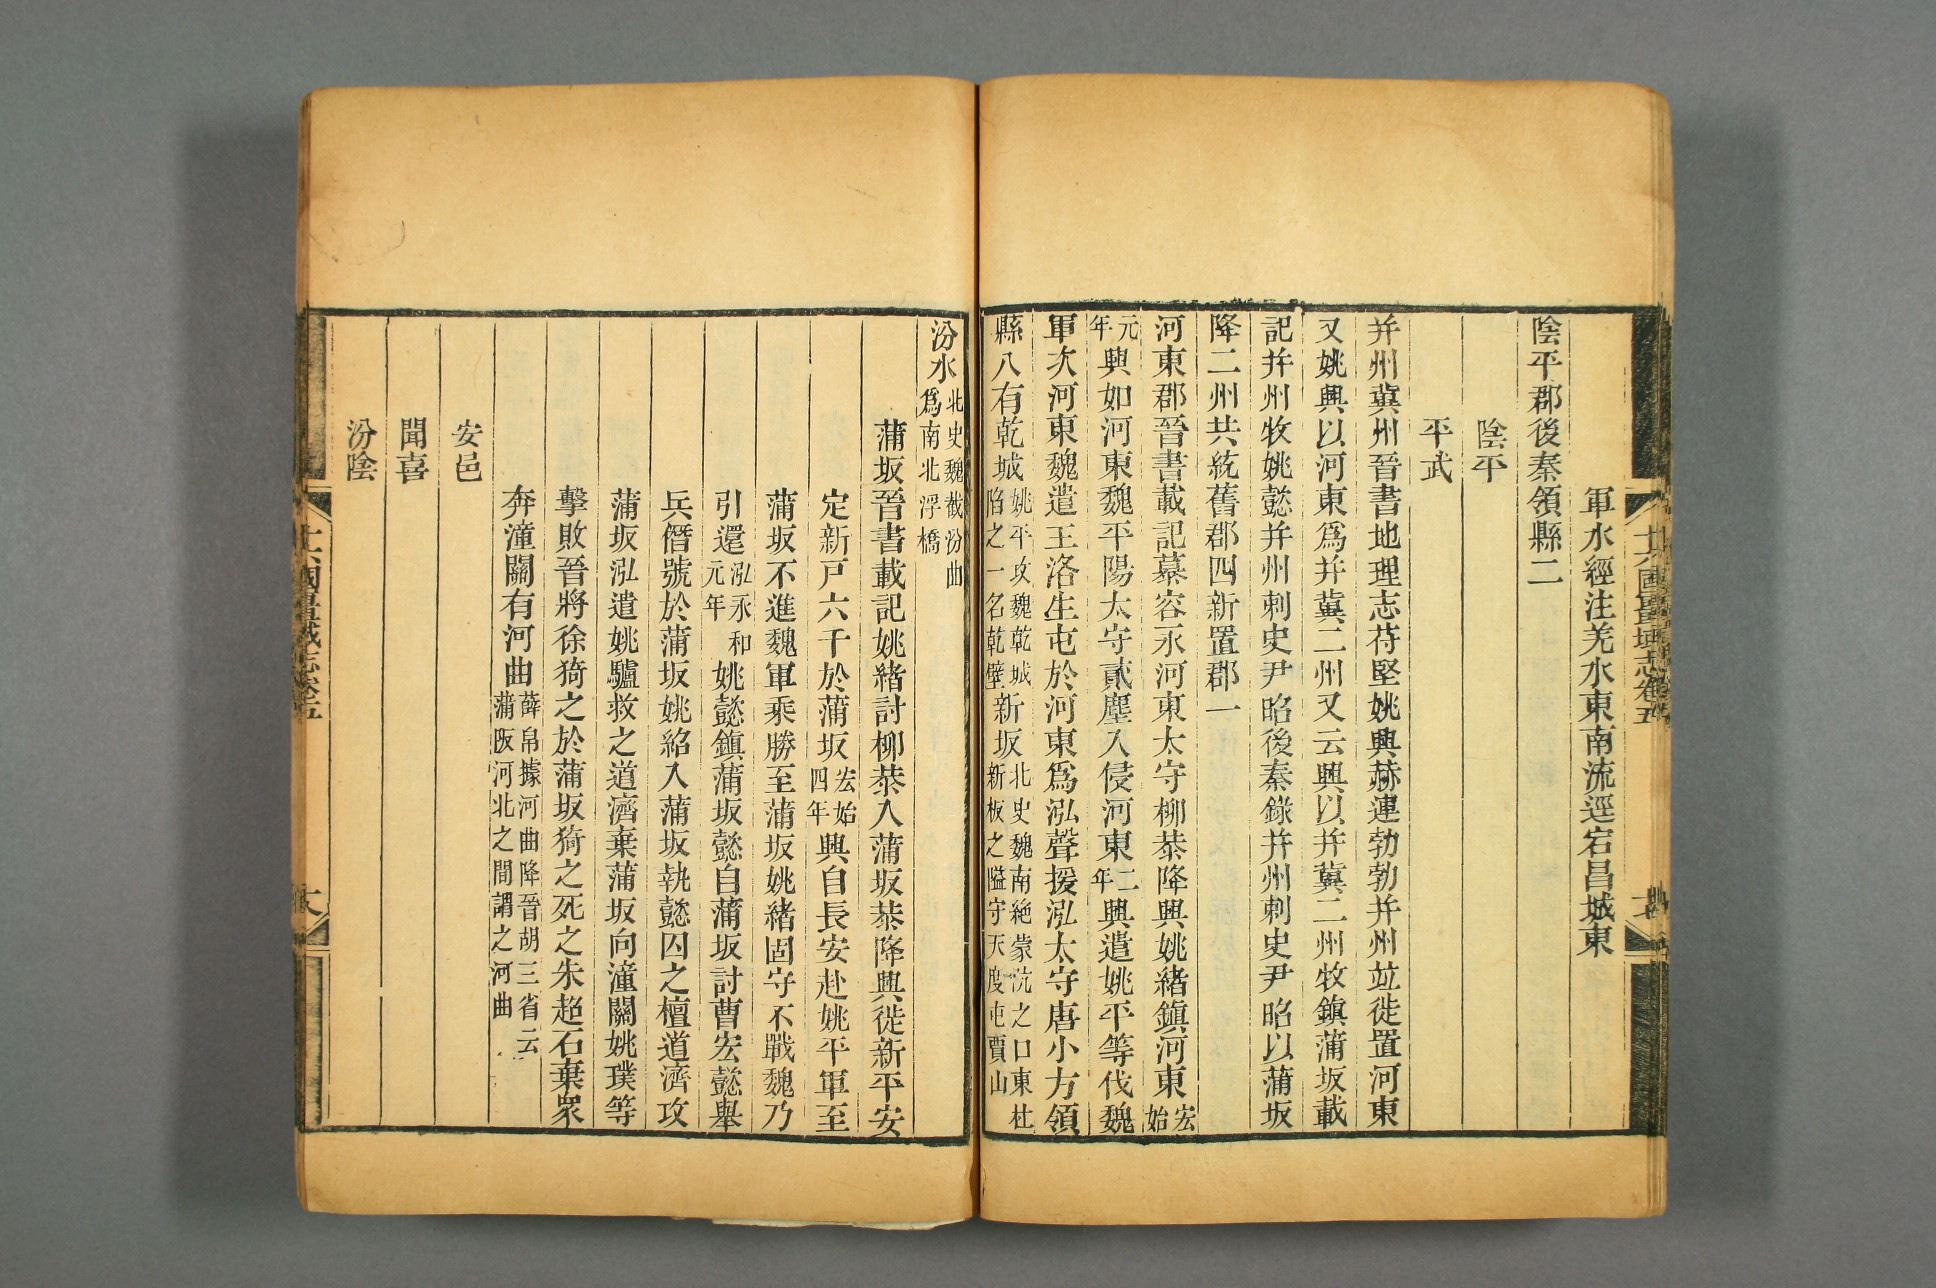 軍水經注羌水東南流逕宕昌城東
陰平郡後秦領縣二
陰平
平武
并州冀州晉書地理志苻堅姚興赫連勃勃并州竝徙置河東
又姚興以河東爲并冀二州又云興以并冀二州牧鎮蒲坂載
記并州牧姚懿并州刺史尹昭後秦錄并州刺史尹昭以蒲坂
降二州共統舊郡四新置郡一
河東郡晉書載記慕容永河東太守柳恭降興姚緒鎮河東宏始
元年興如河東魏平陽太守貳塵入侵河東二年興遣姚平等伐魏
軍次河東魏遣王洛生屯於河東爲泓聲援泓太守唐小方領
縣八有乾城姚平攻魏乾城陷之一名乾壁新坂北史魏南絶蒙坑之口東杜新板之隘守天度屯賈山
汾水北史魏截汾曲爲南北浮橋
蒲坂晉書載記姚緒討柳恭入蒲坂恭降興徙新平安
定新戸六千於蒲坂宏始四年興自長安赴姚平軍至
蒲坂不進魏軍乘勝至蒲坂姚緒固守不戰魏乃
引還泓永和元年姚懿鎮蒲坂懿自蒲坂討曹宏懿舉
兵僭號於蒲坂姚紹入蒲坂執懿囚之檀道濟攻
蒲坂泓遣姚驢救之道濟棄蒲坂向潼關姚璞等
擊敗晉將徐猗之於蒲坂猗之死之朱超石棄眾
奔潼關有河曲薛帛據河曲降晉胡三省云蒲阪河北之間謂之河曲
安邑
聞喜
汾陰
十六國疆域志卷五